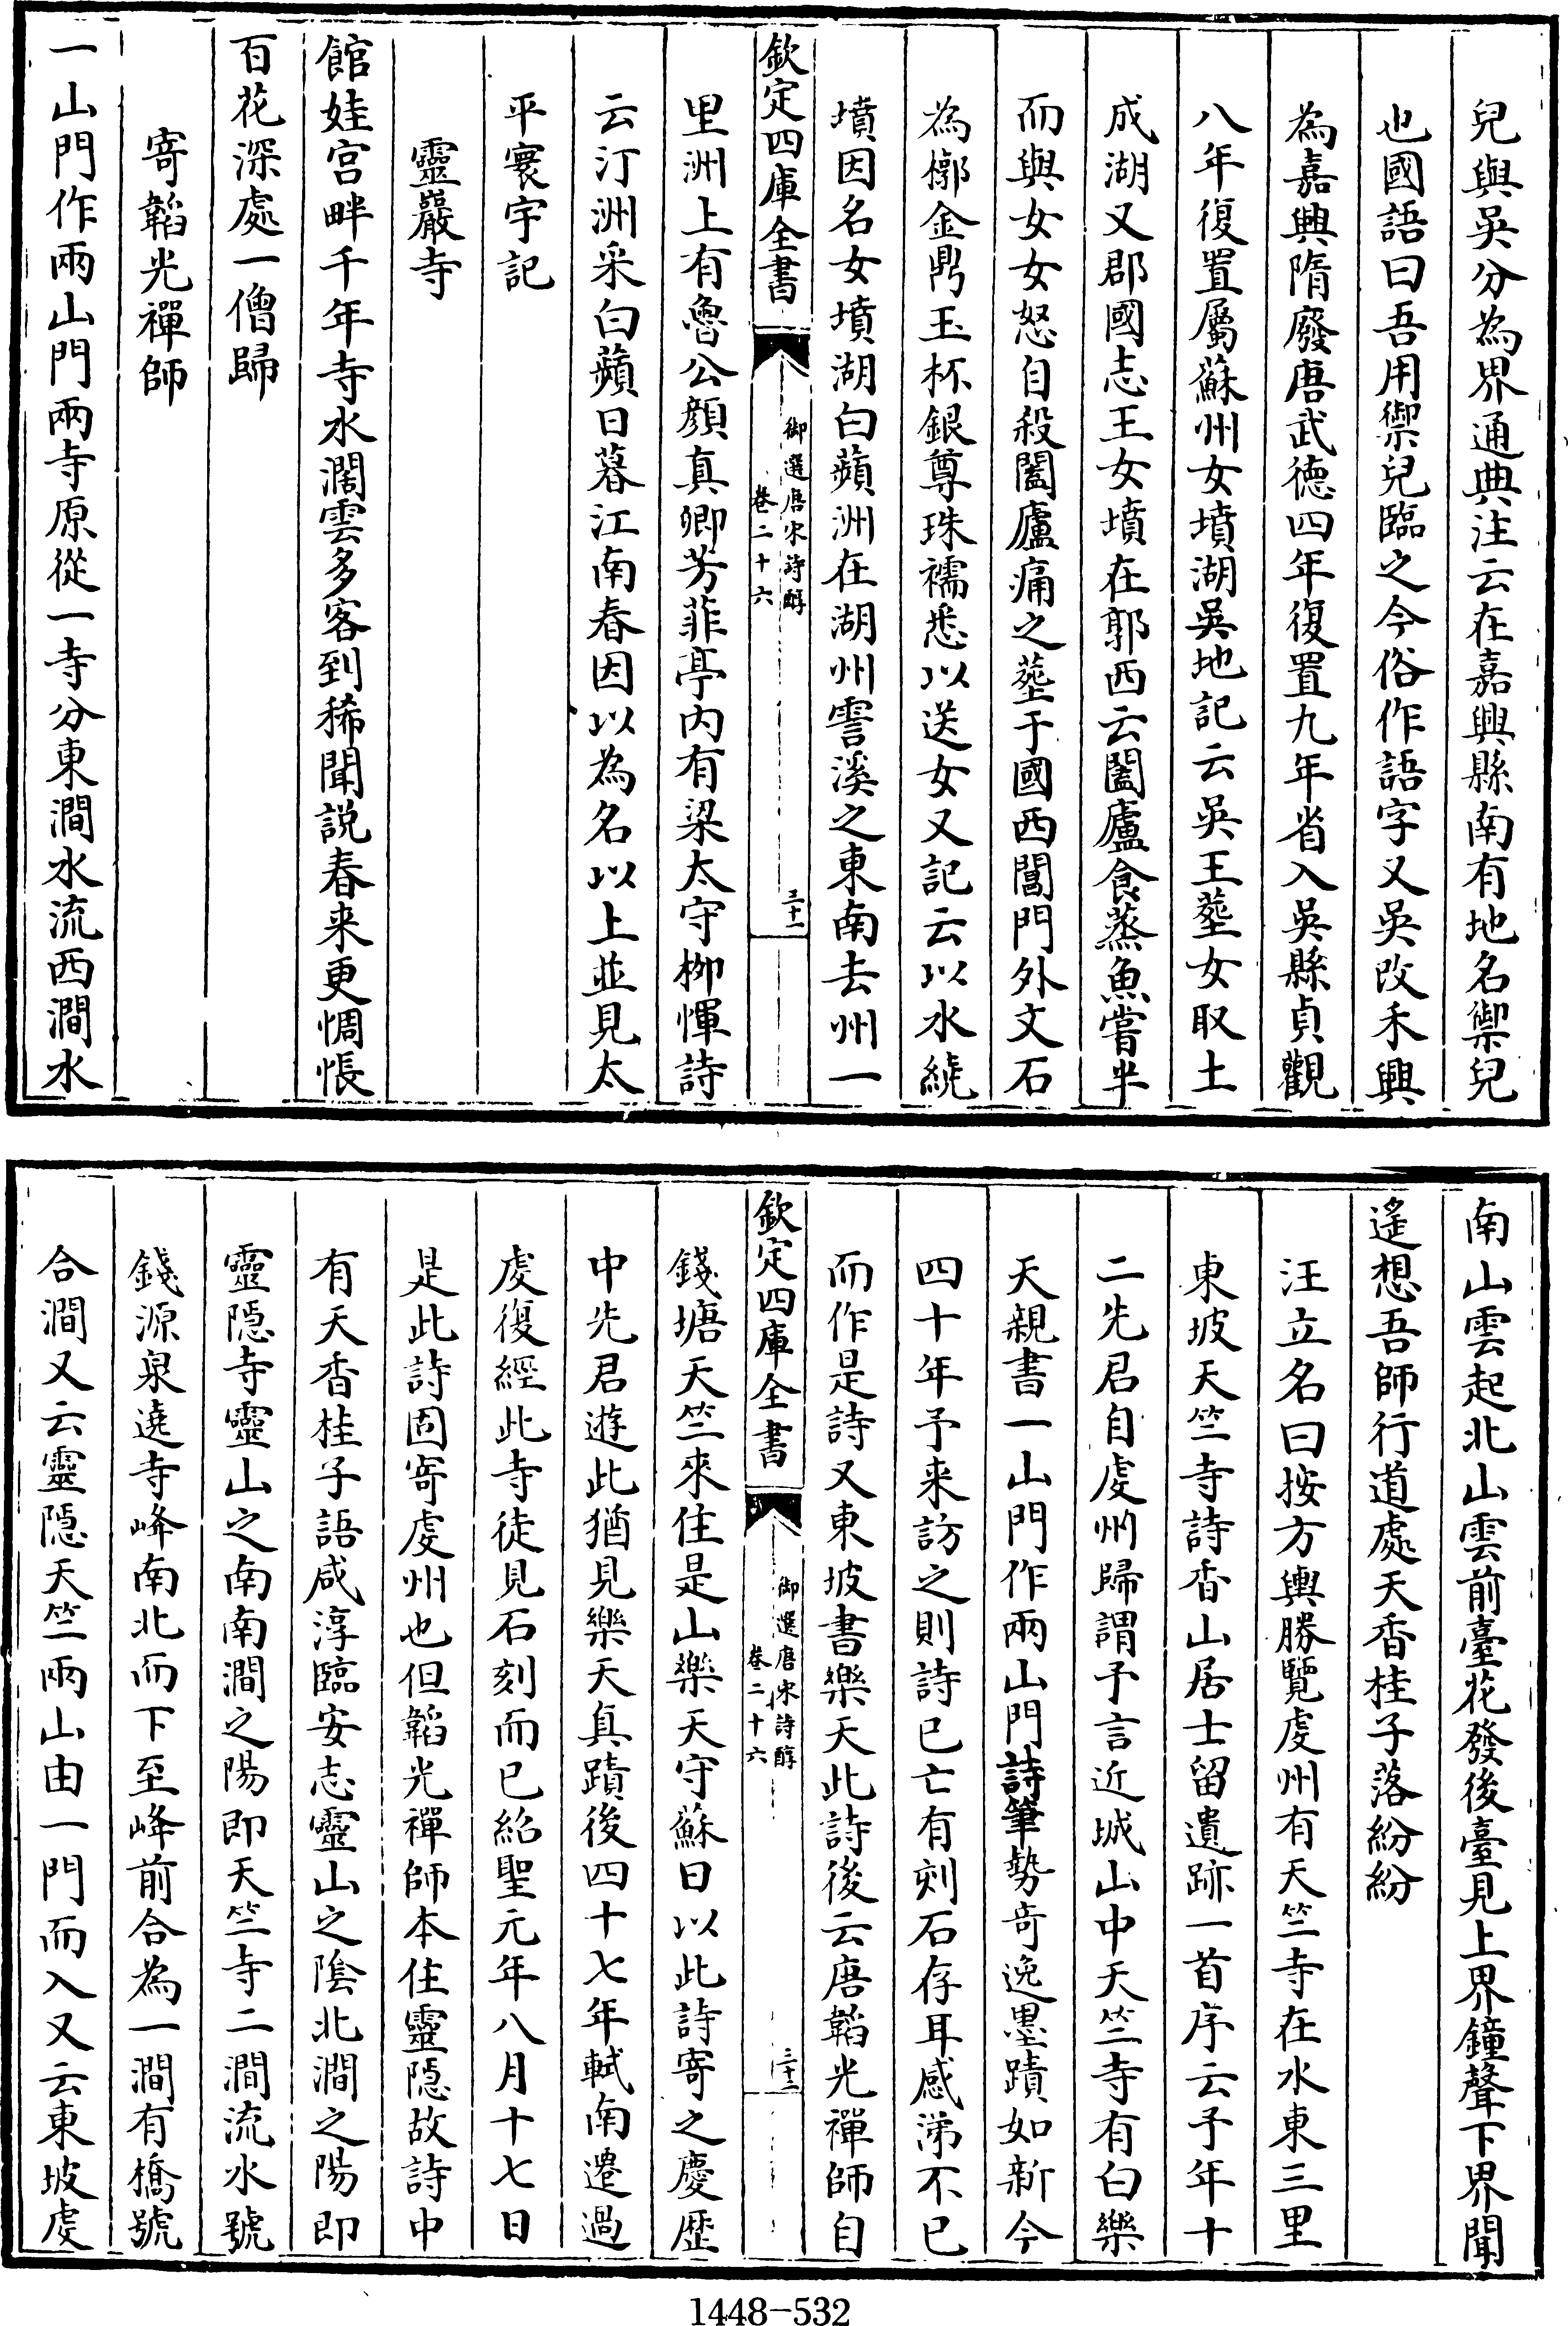 兒與吳分為界通典注云在嘉興縣南有地名禦兒
也國語曰吾用禦兒臨之今俗作語字又吳改禾興
為嘉興隋廢唐武德四年復置九年省入吳縣貞觀
八年復置屬蘇州女墳湖吳地記云吳王塟女取土
成湖又郡國志王女墳在郭西云闔廬食蒸魚嘗半
而與女女怒自殺闔廬痛之塟于國西閶門外文石
為槨金鼎玉杯銀尊珠襦悉以送女又記云以水繞
墳因名女墳湖白蘋洲在湖州霅溪之東南去州一
欽定四庫全書
御選唐宋詩醇
卷二十六
三十一
里洲上有魯公顔真卿芳菲亭内有梁太守柳惲詩
云汀洲采白蘋日暮江南春因以為名以上並見太
平寰宇記
靈巖寺
館娃宫畔千年寺水濶雲多客到稀聞説春来更惆悵
百花深處一僧歸
寄韜光禪師
一山門作兩山門兩寺原從一寺分東澗水流西澗水
南山雲起北山雲前臺花發後臺見上界鐘聲下界聞
遙想吾師行道處天香桂子落紛紛
汪立名曰按方輿勝覽虔州有天竺寺在水東三里
東坡天竺寺詩香山居士留遺跡一首序云予年十
二先君自虔州歸謂予言近城山中天竺寺有白樂
天親書一山門作兩山門詩筆勢奇逸墨蹟如新今
四十年予来訪之則詩已亡有刻石存耳感涕不已
而作是詩又東坡書樂天此詩後云唐韜光禪師自
欽定四庫全書
御選唐宋詩醇
卷二十六
三十二
錢塘天竺來住是山樂天守蘇日以此詩寄之慶歴
中先君遊此猶見樂天真蹟後四十七年軾南遷過
虔復經此寺徒見石刻而已紹聖元年八月十七日
是此詩固寄虔州也但韜光禪師本住靈隠故詩中
有天香桂子語咸淳臨安志靈山之陰北澗之陽即
靈隠寺靈山之南南澗之陽即天竺寺二澗流水號
錢源泉遶寺峰南北而下至峰前合為一澗有橋號
合澗又云靈隠天竺兩山由一門而入又云東坡虔
1448-532